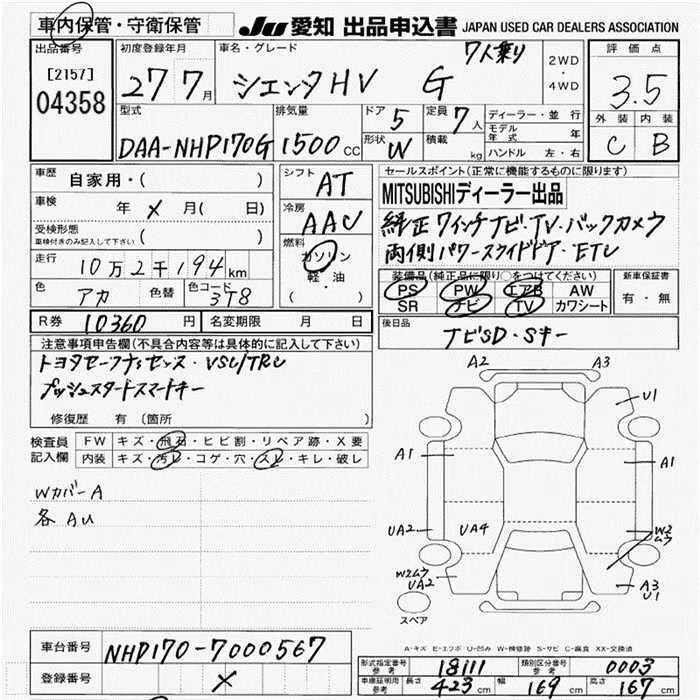 車内保管・守衛保管 JU 愛知 出品申込書 JAPAN USED CAR DEALERS ASSOCIATION
出品番号 [2157] 04358
初度登録年月 27 7月
車名・グレード シエンタHV G 7人乗り
2WD・4WD
評価点 3.5
外装 内装
C B
型式 DAA-NHP170G
排気量 1500 CC
ドア 5 定員 7人
形状 W 積載 kg
ディーラー・並行
モデル年式 年
ハンドル 左・右
車歴 自家用・( )
車検 年 メ 月( 日)
受検形態 車検付きのみ記入して下さい ( )
走行 10万2千194km
色 アカ 色替 色コード 3T8
シフト AT
冷房 AAC
燃料 ガソリン・軽・油 ( )
セールスポイント(正常に機能するものに限ります)
MITSUBISHIディーラー出品
純正7インチナビ・TV・バックカメラ
両側パワースライドドア・ETC
装備品(純正品に限り○をつけてください)
PS PW エアB AW
SR ナビ TV カワシート
新車保証書 有・無
R券 10360円 名変期限 月 日
後日品 ナビSD・Sキー
注意事項申告欄(不具合内容等は具体的に記入して下さい)
トヨタセーフティセンス・VSC/TRC
プッシュスタートスマートキー
修復歴 有(箇所 )
検査員記入欄
FW キズ・飛石・ヒビ割・リペア跡・X要
内装 キズ・汚レ・コゲ・穴・スレ・キレ・破レ
WカバーA
各AU
A2 A3
U1
A1 A1
UA2 UA4 W2ムラ
W2ムラ UA2 A3 U1
スペア
A-キズ E-エクボ U-凹み W-補修跡 S-サビ C-腐食 XX-交換済
車台番号 NHP170-7000567
登録番号 メ
形式指定番号 参考 18111 類別区分番号 参考 0003
車庫証明用 参考 長さ 423cm 幅 169cm 高さ 167cm